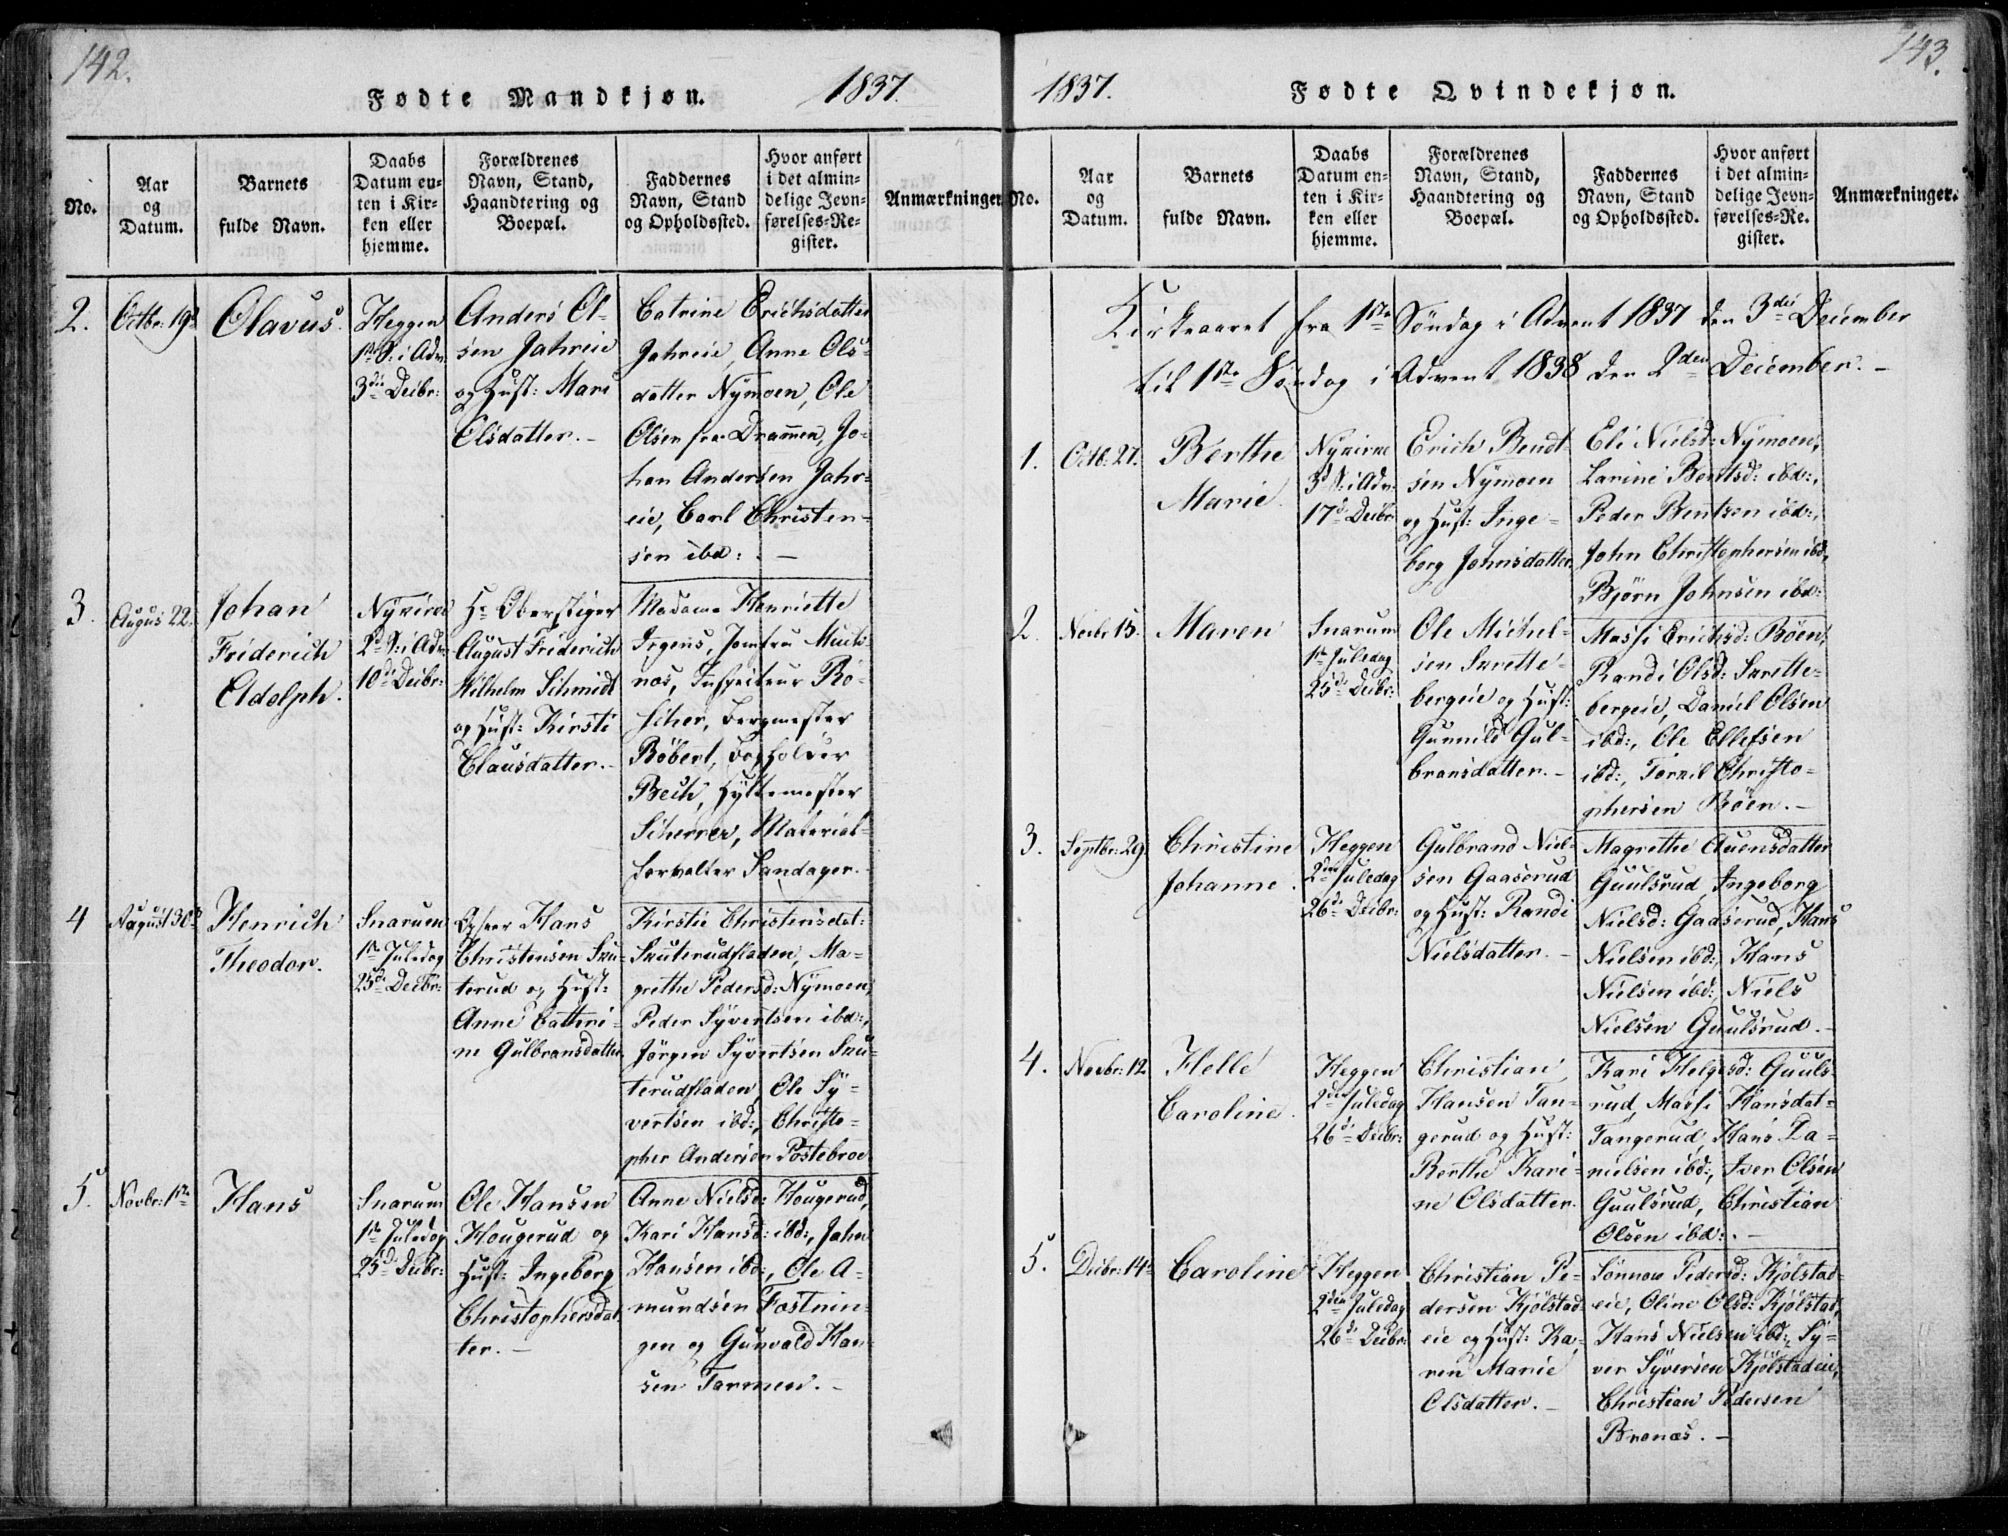 142.
Fødte Mandkjøn.
1837.
No.
Aar
og
Datum.
Barnets
fulde Navn.
Daabs
Datum en-
ten i Kir-
ken eller
hjemme.
Forældrenes
Navn, Stand,
Haandtering og
Boepæl.
Faddernes
Navn, Stand
og Opholdssted.
Hvor anført
i det almin-
delige Jevn-
førelses-Re-
gister.
Anmærkninger.
2.
Octbr: 19d
Olavus.
Heggen
1ste S: i Adv:
3die Decbr:
Anders Ol-
sen Jahreie
og Hust: Mari
Olsdatter. -
Catrine Erichsdatter
Jahreie, Anne Ols-
datter Nymoen, Ole
Olsen fra Drammen, Jo-
han Andersen Jahr-
eie, Carl Christen-
sen ibd: . -
3.
August 22.
Johan
Friderich
Adolph.
Nykirke
2d S: i Adv:
10de Decbr:
Hr Oberstiger
August Friderich
Wilhelm Schmidt
og Hust: Kirsti
Clausdatter. -
Madame Henriette
Irgens, Jomfru
Inspecteur Rö-
scher, Bergmester
Böbert, Bogholder
Bech, Hyttemester
Scherrer, Material-
forvalter Sandager. -
4
August 30d
Henrich
Theodor.
Snarum
1ste Juledag
25de Decbr:
Hans
Christensen Sku-
terud og Hust:
Anne Cathri-
ne Gulbransdatter
Kirstie Christensdat:
Skuterudfladen, Ma-
grethe Pedersd: Nymoen,
Peder Syvertsen ibd:,
Jörgen Syvertsen Sku-
terudfladen, Ole Sy-
vertsen ibd:, Christo-
pher Andersen Tostebroe
5.
Novbr: 1ste
Hans
Snarum
1ste Juledag
25de Decbr:
Ole Hansen
Hougerud og
Hust: Ingeborg
Christophersdat-
ter. -
Anne Nielsd: Hougerud,
Kari Hansd: ibd:, John
Hansen ibd:, Ole A-
mundsen Fostnin-
gen og Gunvald Han-
sen Formen. -
143.
1837.
Fødte Qvindekjøn.
No.
Aar
og
Datum.
Barnets
fulde Navn.
Daabs
Datum en-
ten i Kir-
ken eller
hjemme.
Forældrenes
Navn, Stand,
Haandtering og
Boepæl.
Faddernes
Navn, Stand
og Opholdssted.
Hvor anført
i det almin-
delige Jevn-
førelses-Re-
gister.
Anmærkninger.
Kirkeaaret fra 1ste Söndag i Advent 1837 den 3die December
til 1ste Söndag i Advent 1838 den 2den December. -
1.
Octb: 27.
Berthe
Marie.
Nykirke
3d S: i Adv:
17de Decbr:
Erich Bendt-
sen Nymoen
og Hust: Inge-
borg Johnsdatter
Eli Nielsd: Nymoen,
Larine Bentsd: ibd:,
Peder Bentsen ibd:,
John Christophersen ibd:,
Bjørn Johnsen ibd:
2.
Novbr 15.
Maren
Snarum
1ste Juledag
25de Decbr:
Ole Michel-
sen Skrette-
bergeie og Hust:
Gunnild Gul-
bransdatter. -
Massi Erichsd: Böen,
Randi Olsd: Skrette-
bergeie, Daniel Olsen
ibd:, Ole Ellefsen
ibd:, Torkil Christo-
phersen Böen. -
3.
Septbr: 29.
Christine
Johanne.
Heggen
2den Juledag
26de Decbr:
Gulbrand Niel-
sen Gaaserud
og Hust: Randi
Nielsdatter. -
Magrethe Auensdatter
Guulsrud, Ingeborg
Nielsd: Gaaserud, Hans
Nielsen ibd:, Hans
Nielsen ibd:, Niels
Nielsen Guulsrud. -
4.
Novbr: 12.
Helle
Caroline.
Heggen
2den Juledag
26de Decbr:
Christian
Hansen Tan-
gerud og Hust:
Berthe Kari-
ne Olsdatter.
Kari Helgesd: Guuls-
rud, Massi Hansdat-
Tangerud, Hans Da-
nielsen ibd:, Iver Olsen
Guulsrud, Christian
Olsen ibd: . -
5.
Decbr: 14d
Caroline
Heggen
2den Juledag
26de Decbr:
Christian Pe-
dersen Kjölstad-
eie og Hust: Ka-
ren Marie
Olsdatter. -
Sönnow Pedersd: Kjölstad-
eie, Oline Olsd: Kjölstad,
Hans Nielsen ibd:, Sy-
ver Syversen Kjölstadeie,
Christian Pedersen
Brenæs. -